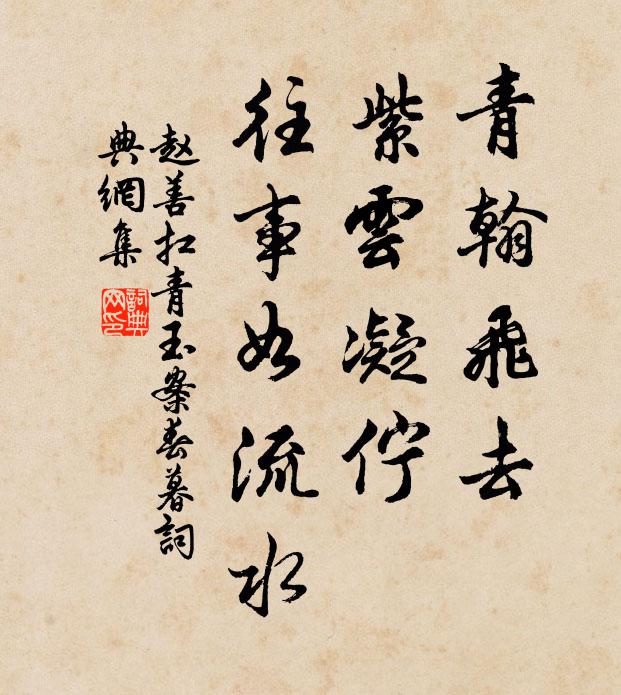 青翰飛去
紫雲凝佇
往事如流水
赵善扛青玉案春暮詞
典網集
詞典网印